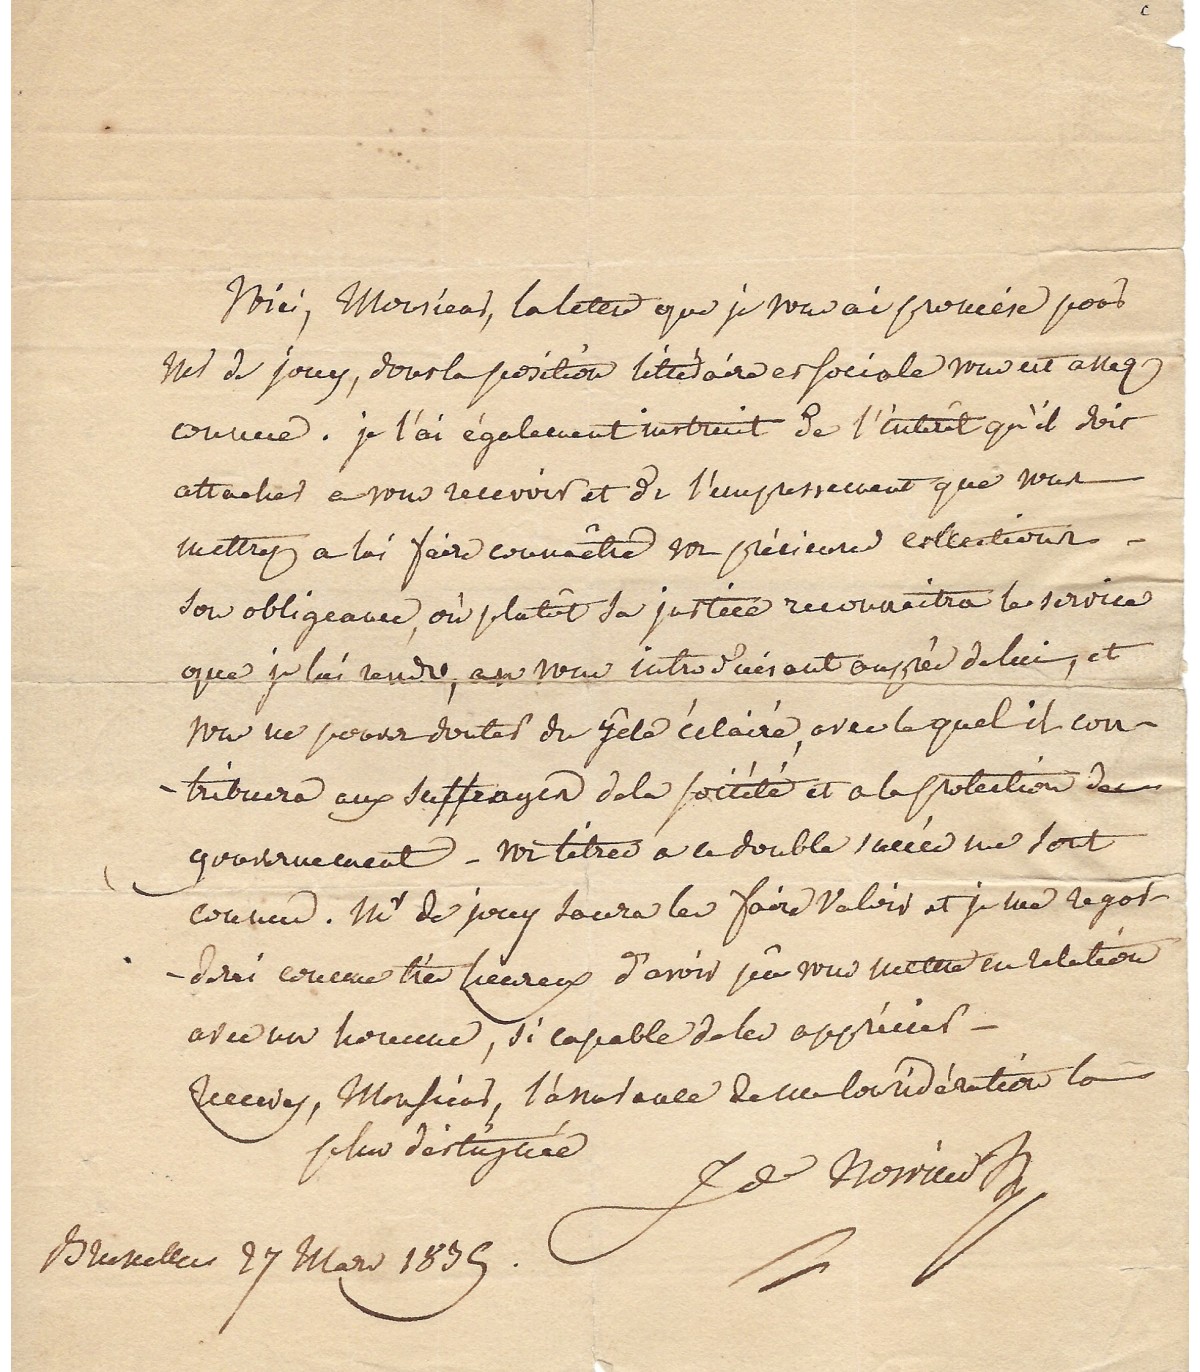 Voici, Monsieur, la lettre que je vous ai promise pour
Mr de jouy, dont la position littéraire et sociale vous est assez
connue. je l'ai également instruit de l'intérêt qu'il doit
attacher a vous recevoir et de l'empressement que vous
mettrez a lui faire connaître vos précieuses collections -
son obligeance, où plutôt sa justice reconnaitra le service
que je lui rends, en vous introduisant auprès de lui, et
vous ne pouvez douter du zèle éclairé, avec lequel il con-
-tribuera aux suffrages de la société et a la protection du
gouvernement - vos titres a ce double succès me sont
connus. Mr de jouy saura les faire valoir et je me regar-
-derai comme très heureux d'avoir pû vous mettre en relation
avec un homme, si capable de les apprécier -
Recevez, Monsieur, l'assurance de ma considération la
plus distinguée
J de Norvins
Bruxelles 27 Mars 1835.